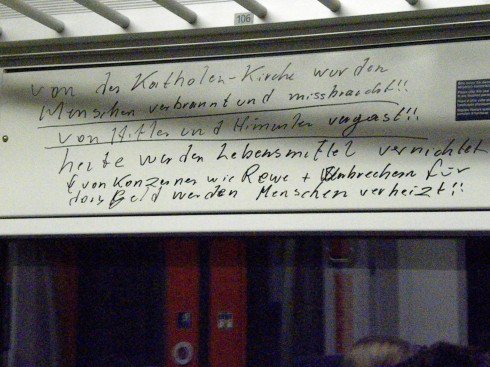 106
von der Katholen-Kirche wurden
Menschen verbrannt und missbraucht!!
von Hitler und Himmler vergast!!
heute werden Lebensmittel vernichtet
& von Konzernen wie Rewe + Umbrechern für
das Geld werden Menschen verheizt!!